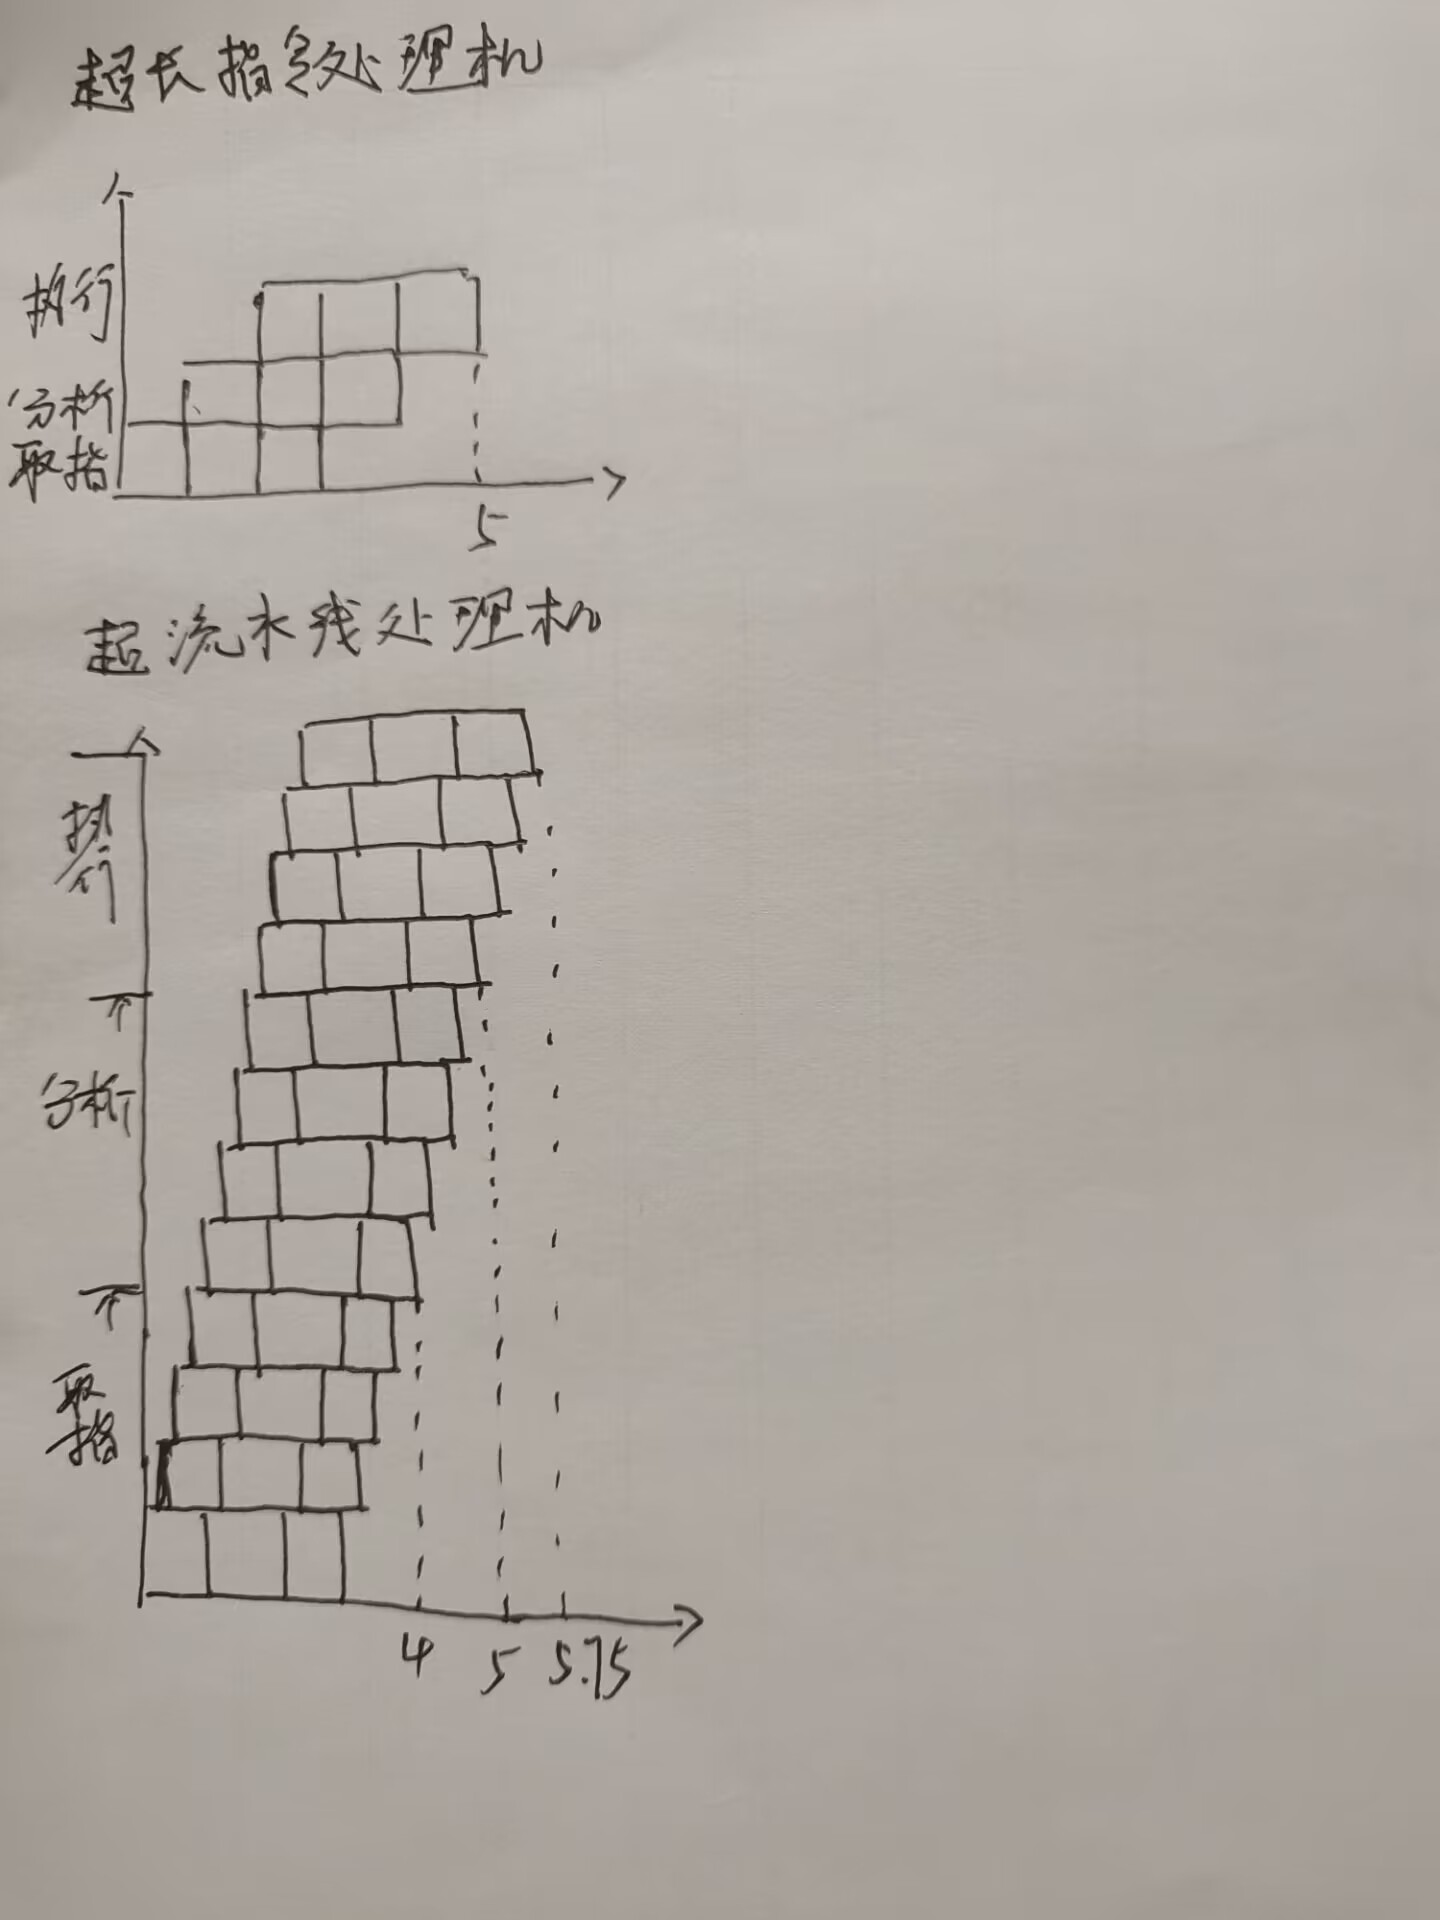 超长指令处理机
执行
分析
取指
5
超流水线处理机
执行
分析
取指
4 5 5.75